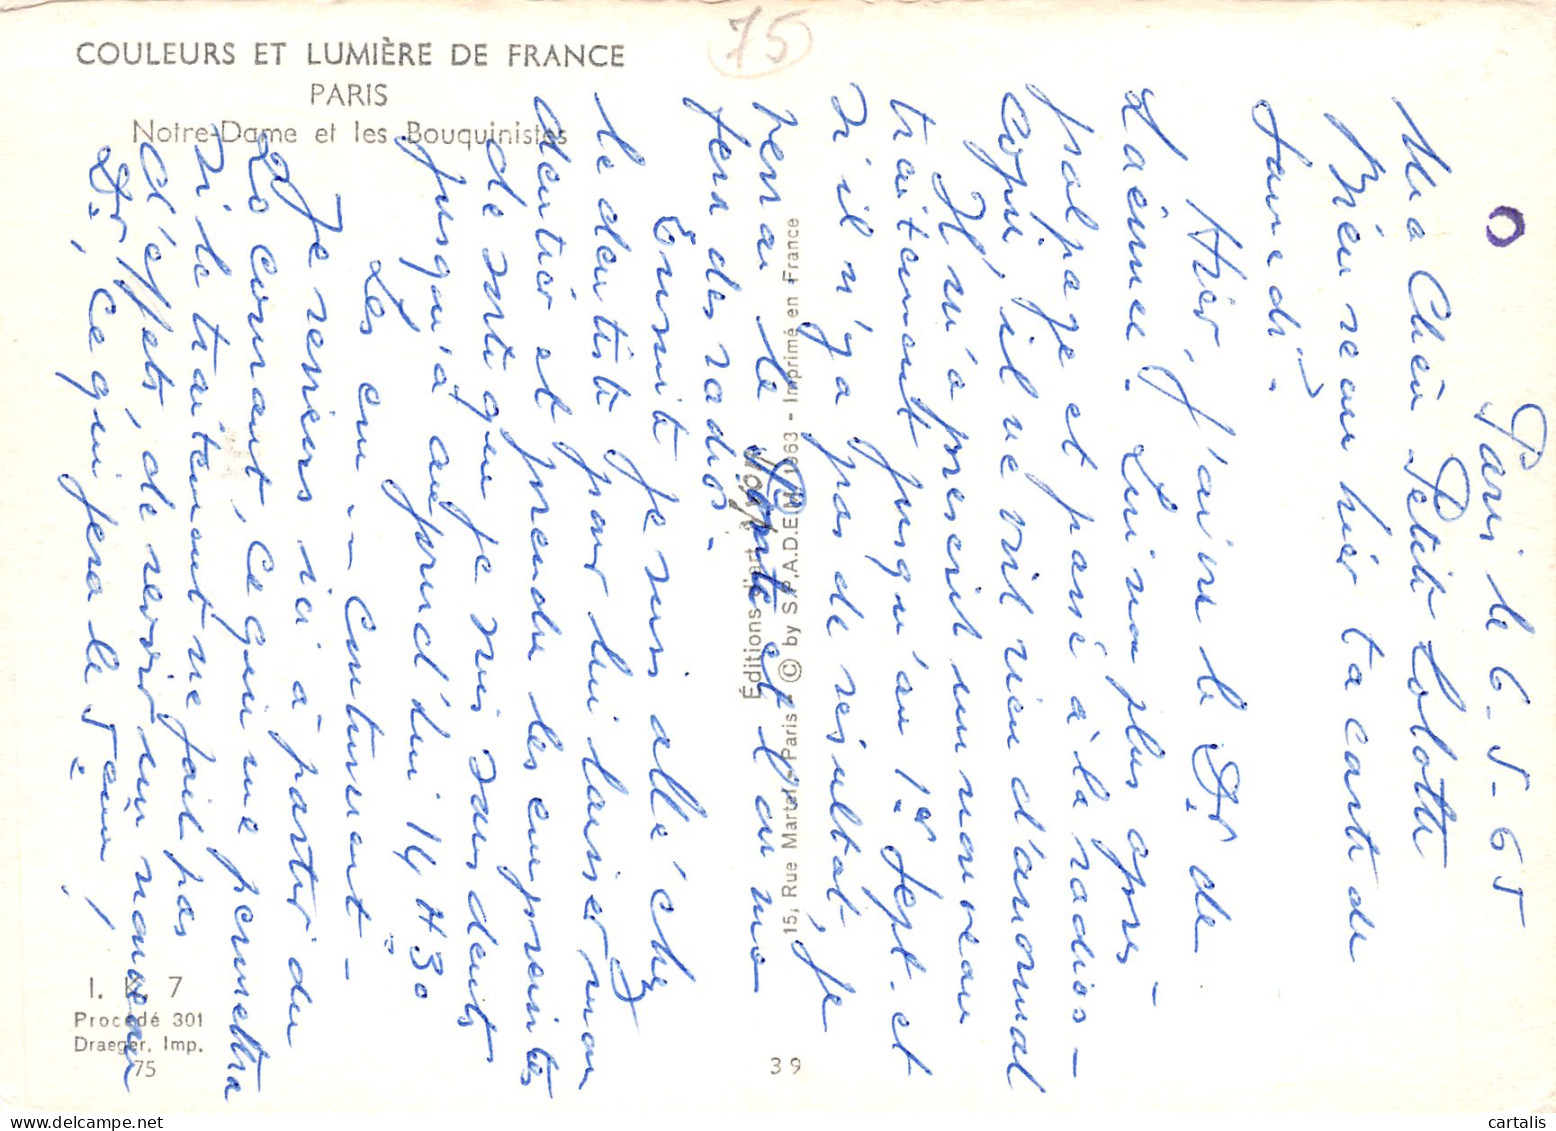 COULEURS ET LUMIÈRE DE FRANCE
PARIS
Notre-Dame et les Bouquinistes
75
Paris le 6-5-65
Ma Chère Petite Lolotte
Bien reçu hier ta carte de
Samedi.
Hier, j'ai vu le Dr de
Laënnec. Lui non plus après
palpage et passé à la radios-
copie, il ne voit rien d'anormal
Il m'a prescrit un nouveau
traitement jusqu'au 1er Sept. et
si il n'y a pas de résultat, je
verrai le et l'on me
fera des radios.
Ensuite je suis allé chez
le dentiste pour lui laisser mon
dentier et prendre les empreintes
de sorte que je suis sans dents
jusqu'à aujourd'hui 14 H 30
Les continuent -
Je reviens ici à partir du
20 courant, ce qui me permettra
si le traitement ne fait pas
d'effets, de revoir un nouveau
Dr, ce qui fera le 5ème !
Éditions d'art Yvon
15, Rue Martel - Paris - © by S.P.A.D.E.M. 1963 - Imprimé en France
I. K. 7
Procédé 301
Draeger, Imp.
75
39
cartalis